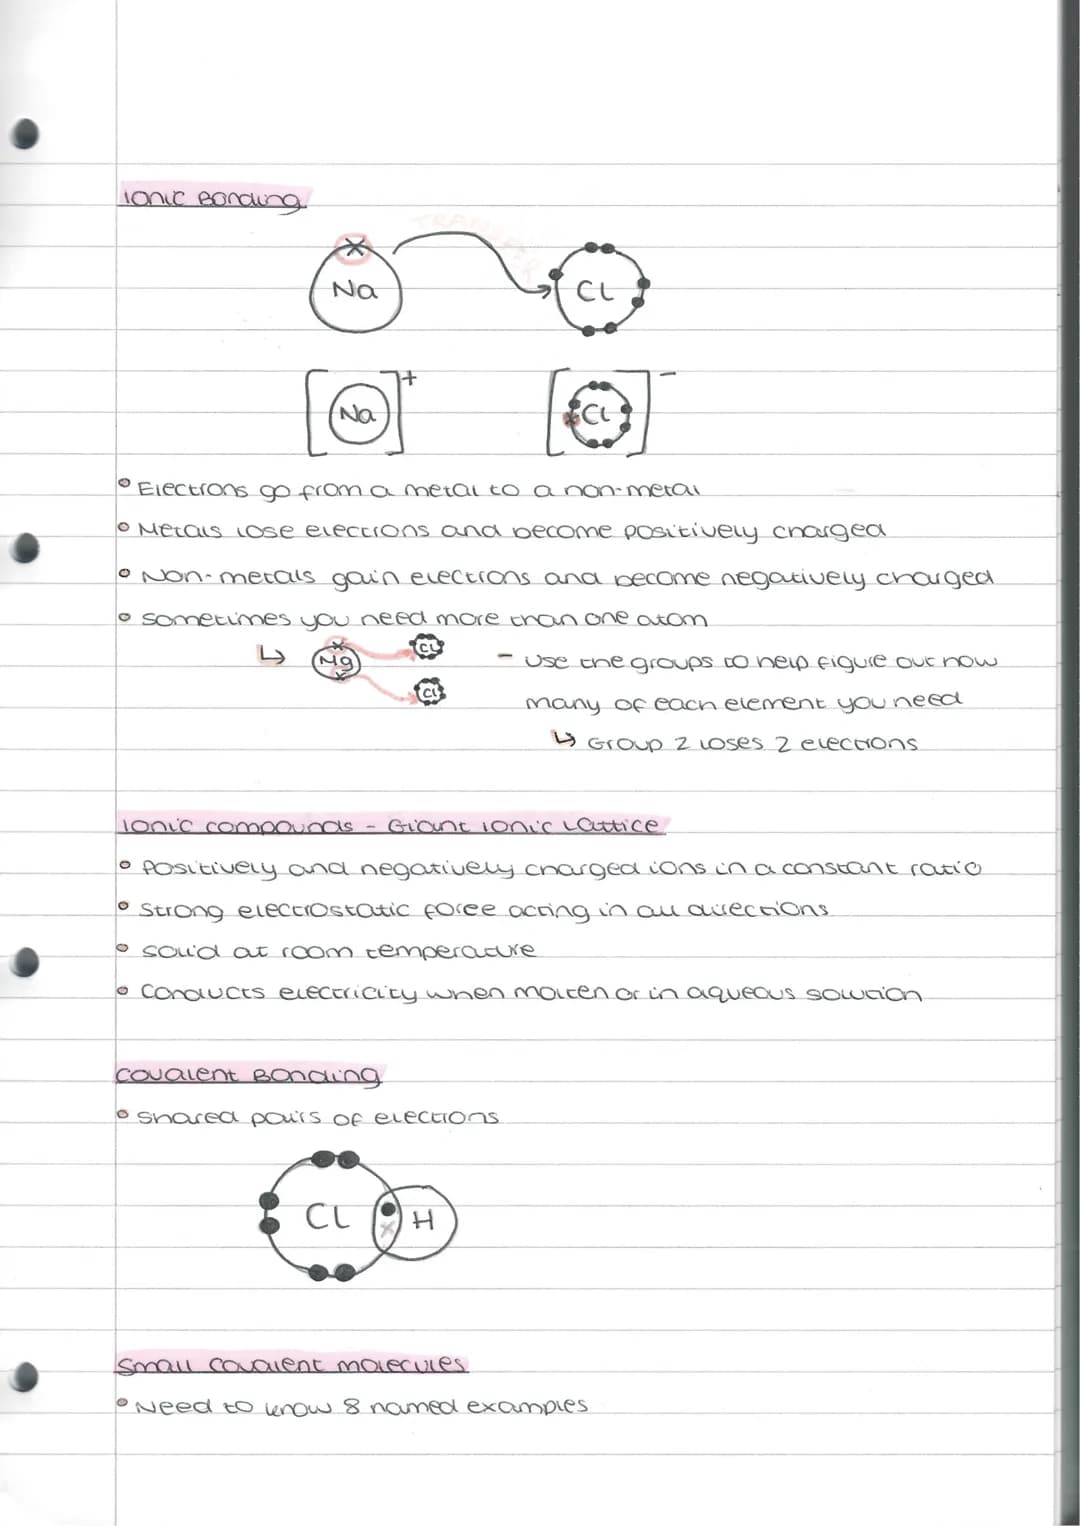 Ionic Bonding
TRANSFER
Na
Cl
Na
+
Cl
-
• Electrons go from a metal to a non-metal
• Metals lose electrons and become positively charged
• Non-metals gain electrons and become negatively charged
• Sometimes you need more than one atom
↳ Mg
Cl
Cl
- Use the groups to help figure out how
many of each element you need
↳ Group 2 loses 2 electrons
Ionic compounds - Giant Ionic Lattice
• Positively and negatively charged ions in a constant ratio
• Strong electrostatic force acting in all directions
• Solid at room temperature
• Conducts electricity when molten or in aqueous solution
Covalent Bonding
• Shared pairs of electrons
Cl H
Small covalent molecules
• Need to know 8 named examples